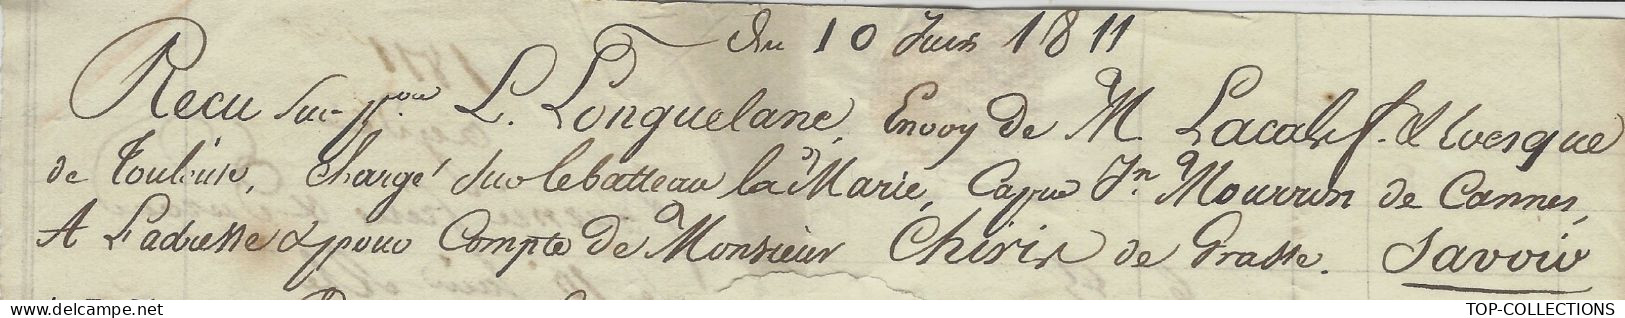 Du 10 Juin 1811
Recu sur pour L. Longuelane, Envoy de M. Lacals f. & Voesque
de Toulouse, chargé sur le batteau la Marie, Cappne Jn Mourrun de Cannes,
A Ladresse & pour Compte de Monsieur Chiris de Grasse. Savoir
TOP-COLLECTIONS